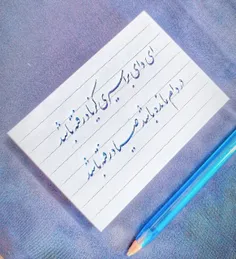 ای وای بر اسیری کز یاد رفته باشد
در دام مانده باشد صیاد رفته باشد